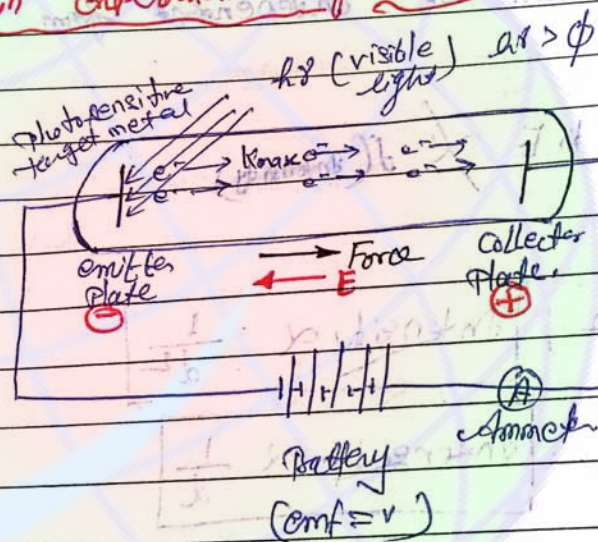 hν (visible light) hν > φ
photosensitive
target metal
e⁻ → Kmax e⁻ → e⁻ →
e⁻ → e⁻ → e⁻ →
→ Force
← E
emitter
Plate
⊖
Collector
Plate.
⊕
A
Ammeter
Battery
(emf = v)